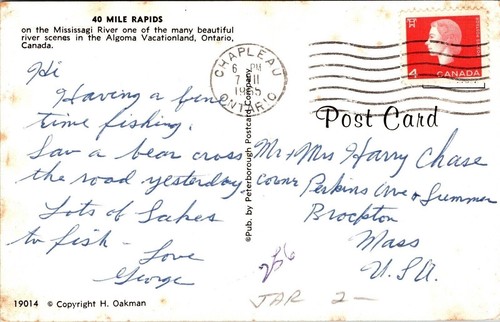 40 MILE RAPIDS
on the Mississagi River one of the many beautiful
river scenes in the Algoma Vacationland, Ontario,
Canada.
Hi
Having a fine
time fishing.
Saw a bear cross
the road yesterday,
Lots of Lakes
to fish -
Love
George
19014 © Copyright H. Oakman
©Pub. by Peterborough Postcard Company
CHAPLEAU
6 PM
7 II
1965
ONTARIO
4 CANADA
Post Card
Mr + Mrs Harry Chase
corner Perkins Ave + Summer
Brockton
Mass
U.S.A.
JAR 2-